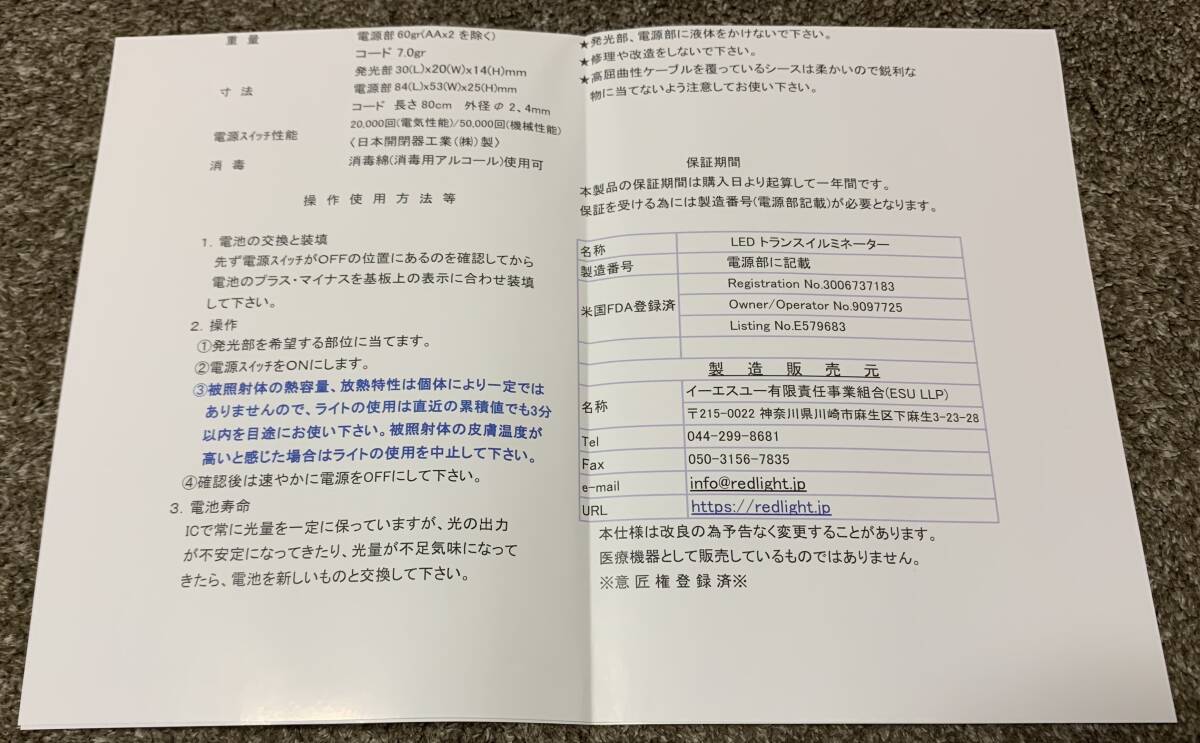 重量 電源部60gr(AAx2を除く)
コード 7.0gr
発光部30(L)x20(W)x14(H)mm
寸法 電源部84(L)x53(W)x25(H)mm
コード 長さ80cm 外径Φ2、4mm
電源スイッチ性能 20,000回(電気性能)/50,000回(機械性能)
〈日本開閉器工業(㈱)製〉
消毒 消毒綿(消毒用アルコール)使用可
操作使用方法等
1. 電池の交換と装填
先ず電源スイッチがOFFの位置にあるのを確認してから
電池のプラス・マイナスを基板上の表示に合わせ装填
して下さい。
2. 操作
①発光部を希望する部位に当てます。
②電源スイッチをONにします。
③被照射体の熱容量、放熱特性は個体により一定では
ありませんので、ライトの使用は直近の累積値でも3分
以内を目途にお使い下さい。被照射体の皮膚温度が
高いと感じた場合はライトの使用を中止して下さい。
④確認後は速やかに電源をOFFにして下さい。
3. 電池寿命
ICで常に光量を一定に保っていますが、光の出力
が不安定になってきたり、光量が不足気味になって
きたら、電池を新しいものと交換して下さい。
★発光部、電源部に液体をかけないで下さい。
★修理や改造をしないで下さい。
★高屈曲性ケーブルを覆っているシースは柔かいので鋭利な
物に当てないよう注意してお使い下さい。
保証期間
本製品の保証期間は購入日より起算して一年間です。
保証を受ける為には製造番号(電源部記載)が必要となります。
名称 LEDトランスイルミネーター
製造番号 電源部に記載
米国FDA登録済 Registration No.3006737183
Owner/Operator No.9097725
Listing No.E579683
製造販売元
名称 イーエスユー有限責任事業組合(ESU LLP)
〒215-0022 神奈川県川崎市麻生区下麻生3-23-28
Tel 044-299-8681
Fax 050-3156-7835
e-mail info@redlight.jp
URL https://redlight.jp
本仕様は改良の為予告なく変更することがあります。
医療機器として販売しているものではありません。
※意匠権登録済※